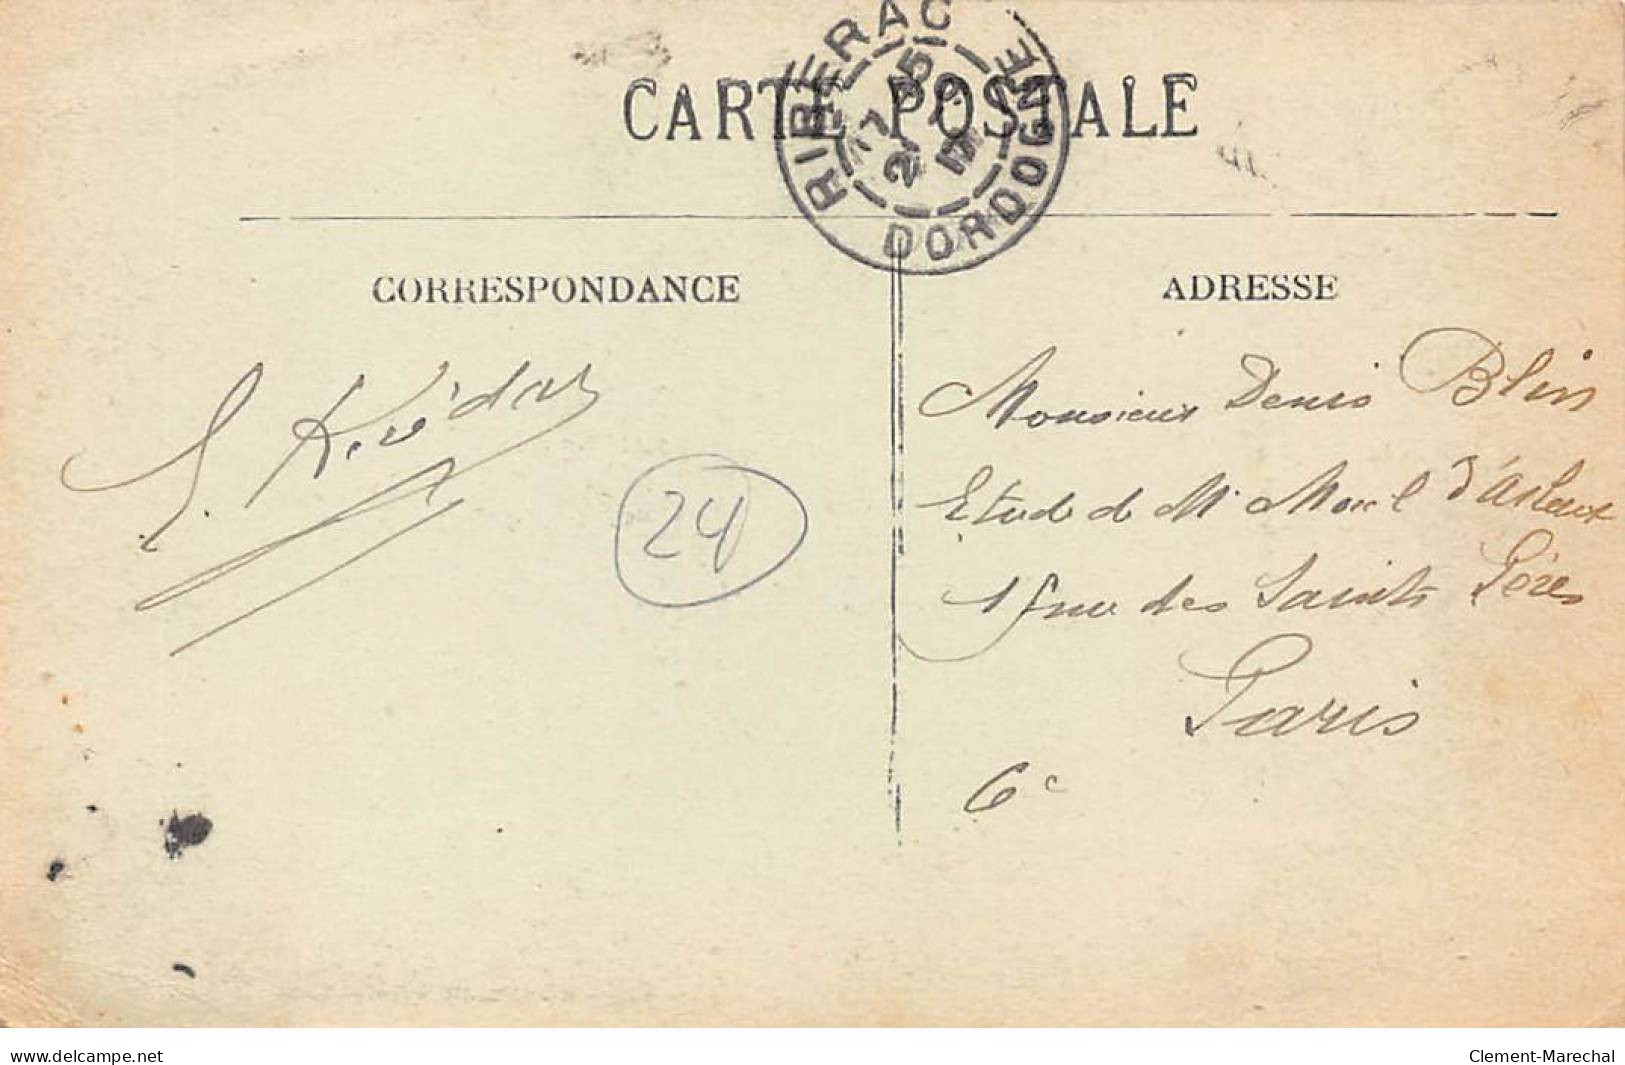 CARTE POSTALE
RIBERAC
DORDOGNE
CORRESPONDANCE
ADRESSE
24
Monsieur Denis Blin
Etude de Me Morel d'Arleux
15 rue des Saints Pères
Paris
6e
www.delcampe.net
Clement-Marechal